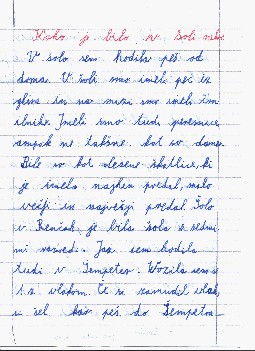 Kako je bilo v šoli nekoč
V šolo sem hodila peš od
doma. V šoli smo imeli peč iz
gline in na mizi smo imeli črn
ilnike. Imeli smo tudi peresnice
ampak ne takšne kot so danes.
Bile so kot lesene škatlice, ki
je imela majhen predal, malo
večji in največji predal. Šolo
v Renčah, je bila šola s sedmi
mi razredi. Jaz sem hodila
tudi v Šempeter. Vozila sem se
z vlakom. Če si zamudil vlak,
si šel kar peš do Šempetra.